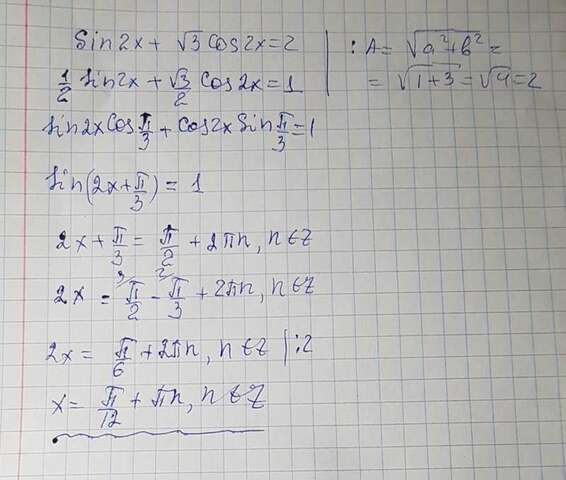 Sin2x + √3 Cos2x = 2 | : A = √(a²+b²) =
= √(1+3) = √4 = 2
1/2 Sin2x + √3/2 Cos2x = 1
Sin2x Cos π/3 + Cos2x Sin π/3 = 1
Sin(2x + π/3) = 1
2x + π/3 = π/2 + 2πn, n∈Z
2x = ³⁄π/2 - ²⁄π/3 + 2πn, n∈Z
2x = π/6 + 2πn, n∈Z | :2
x = π/12 + πn, n∈Z